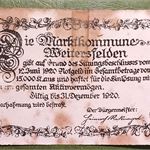 Die Marktkommune
Weitersfelden
gibt auf Grund des Sitzungsbeschlusses vom
12. Juni 1920 Notgeld im Gesamtbetrage von
15.000 K aus und haftet für die Einlösung mit
gesamten Aktivvermögen.
Gültig bis 31. Dezember 1920.
Nachahmung wird bestraft.
Der Bürgermeister: